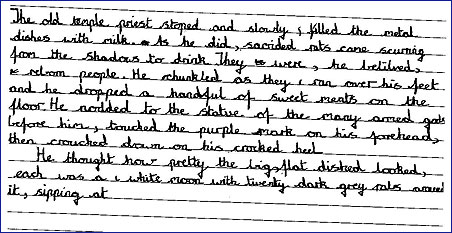 The old temple priest stoped and slowly, filled the metal
dishes with milk. As he did, sacrided rats came scurring
from the shadows to drink They were, he beleived,
reborn people. He chunkled as they ran over his feet
and he dropped a handful of sweet meats on the
floor. He nodded to the statue of the many armed gods
before him, touched the purple mark on his forehead,
then crouched down on his crocked heel
He thought how pretty the big, flat dished looked,
each was a white moon with twenty dark grey rats around
it, sipping at